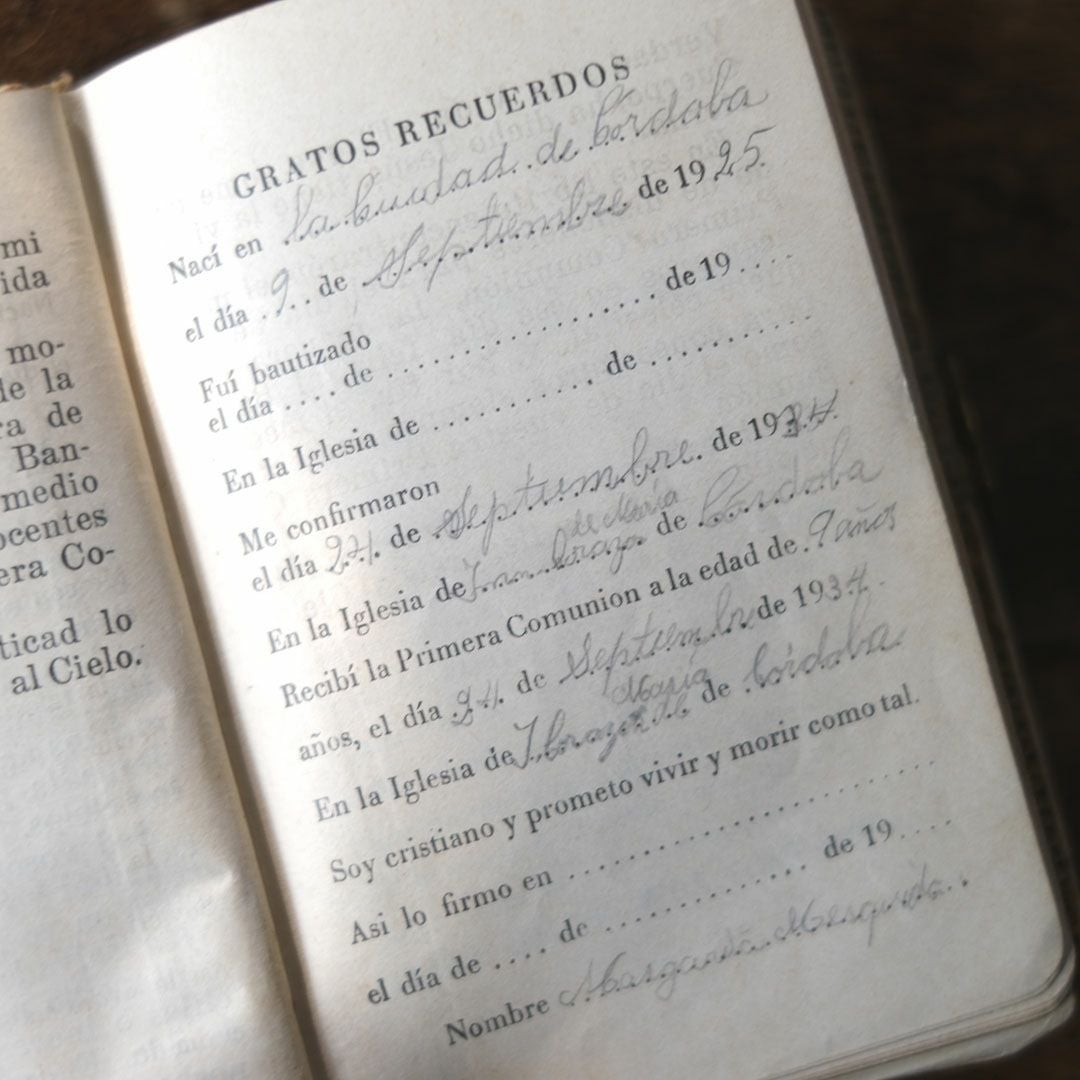 mi
ida
mo-
de la
ra de
Ban-
medio
ocentes
era Co-
ticad lo
al Cielo.
GRATOS RECUERDOS
Nací en la Ciudad de Córdoba
el día 9 de Septiembre de 1925.
Fuí bautizado
el día .... de .................... de 19 ....
En la Iglesia de ............ de ............
Me confirmaron
el día 24 de Septiembre de 1934.
En la Iglesia de Corazón de María de Córdoba
Recibí la Primera Comunion a la edad de 9 años
años, el día 24 de Septiembre de 1934.
En la Iglesia de Corazón de María de Córdoba
Soy cristiano y prometo vivir y morir como tal.
Asi lo firmo en ............................
el día de .... de ............... de 19 ....
Nombre Margarita Mesquida